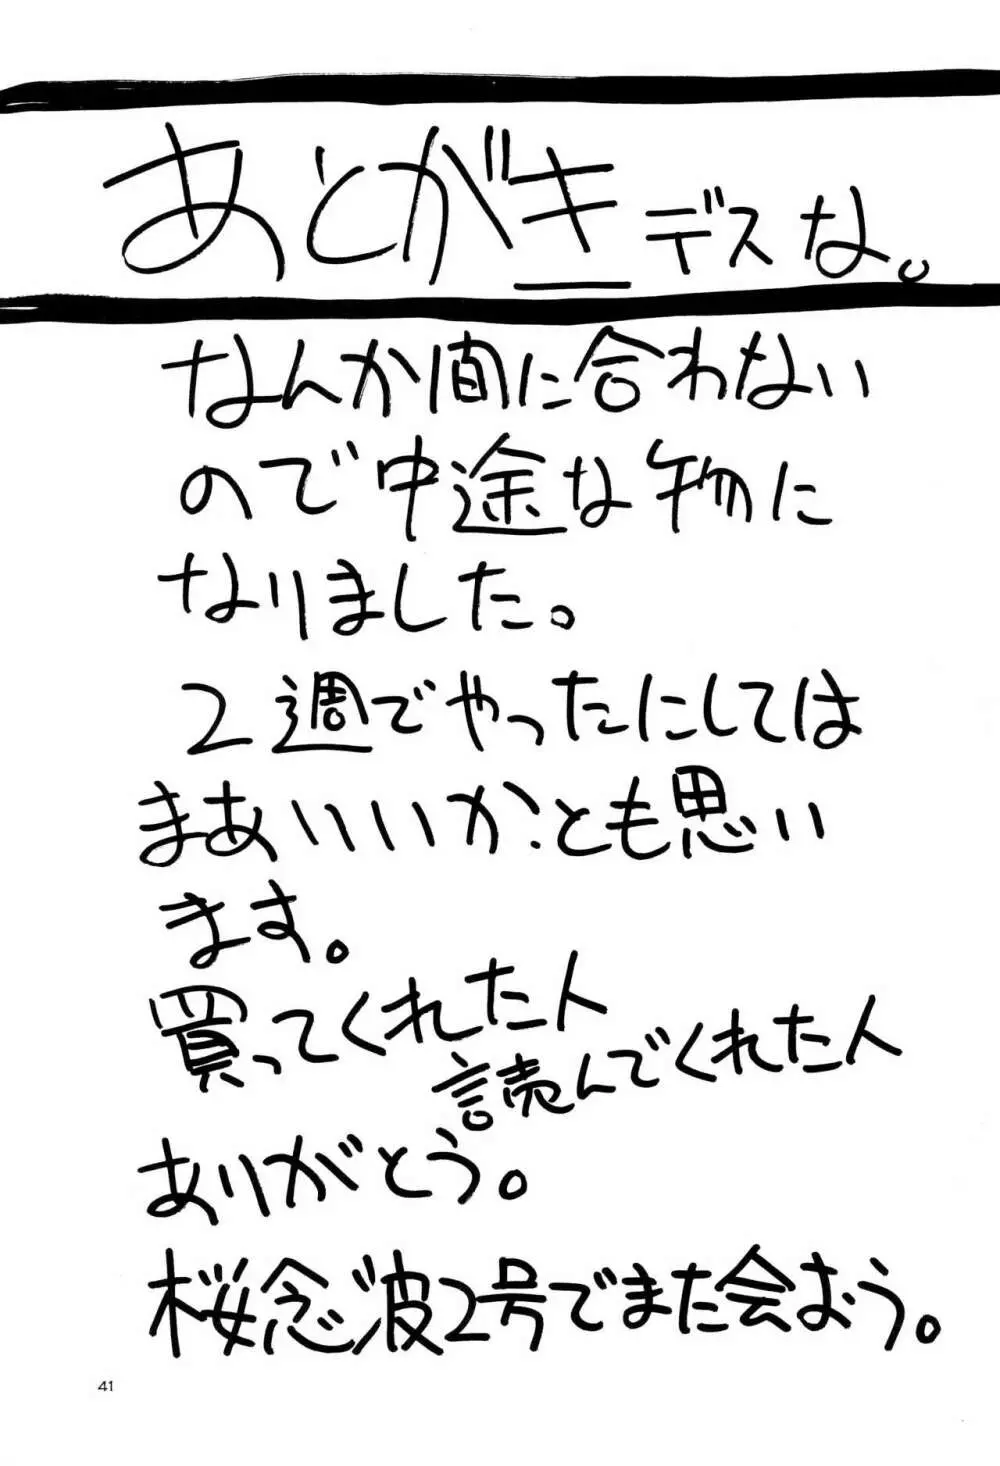 あとがキデスな。
なんか間に合わない
ので中途な物に
なりました。
2週でやったにしては
まあいいか、とも思い
ます。
買ってくれた人
読んでくれた人
ありがとう。
桜念波2号でまた会おう。
41